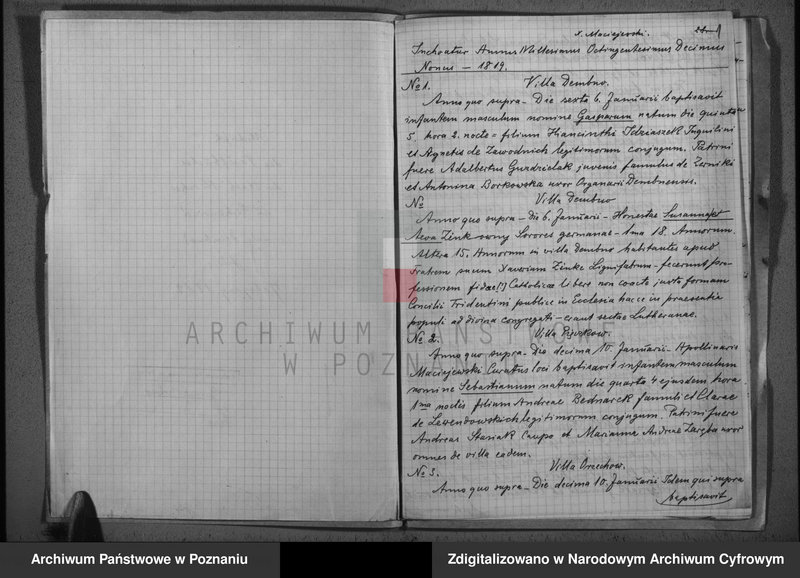 x. Maciejewski.
Inchoatur Annus Millesimus Octingentesimus Decimus
Nonus — 1819.
No 1. Villa Dembno.
Anno quo supra — Die sexta 6. Januarii baptisavit
infantem masculum nomine Gasparum natum die quinta
5. hora 2. nocte = filium Hiancinthi Idziaszek Inquilini
et Agnetis de Zawodnich legitimorum conjugum. Patrini
fuere Adalbertus Gurdzielak juvenis famulus de Zerniki
et Antonina Borkowska uxor Organarii Dembnensis.
No Villa Dembno
Anno quo supra — die 6. Januarii — Honestae Susanna et
Aeva Zink sorores germanae — 1ma 18. Annorum.
Altera 15. Annorum in villa Dembno habitantes apud
Fratrem suum Xaverium Zinke Lignifabrum — fecerunt pro-
fessionem fidae [!] Cattolicae libere non coacto juxta formam
Concilii Tridentini publice in Ecclesia hacce in praesentia
populi ad divina congregati — erant sectae Lutheranae.
No 2. Villa Pyszkow.
Anno quo supra — Die decima 10. Januarii — Apollinaris
Maciejewski Curatus loci baptisavit infantem masculum
nomine Sebastianum natum die quarta 4 ejusdem hora
1ma noctis filium Andreae Bednarek famuli et Clarae
de Lewendowskich legitimorum conjugum. Patrini fuere
Andreas Stasiak Caupo et Marianna Andreae Zaręba uxor
omnes de villa eadem.
No 3. Villa Orzechow.
Anno quo supra — Die decima 10. Januarii Idem qui supra
baptisavit
ARCHIWUM PAŃSTWOWE
W POZNANIU
Archiwum Państwowe w Poznaniu
Zdigitalizowano w Narodowym Archiwum Cyfrowym